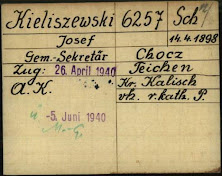 Kieliszewski 6257 Sch
Josef 14.4.1898
Gem.-Sekretär Chocz
Zug: 26. April 1940 Teichen
A.K. Kr. Kalisch
vh. r.kath. P.
-5. Juni 1940